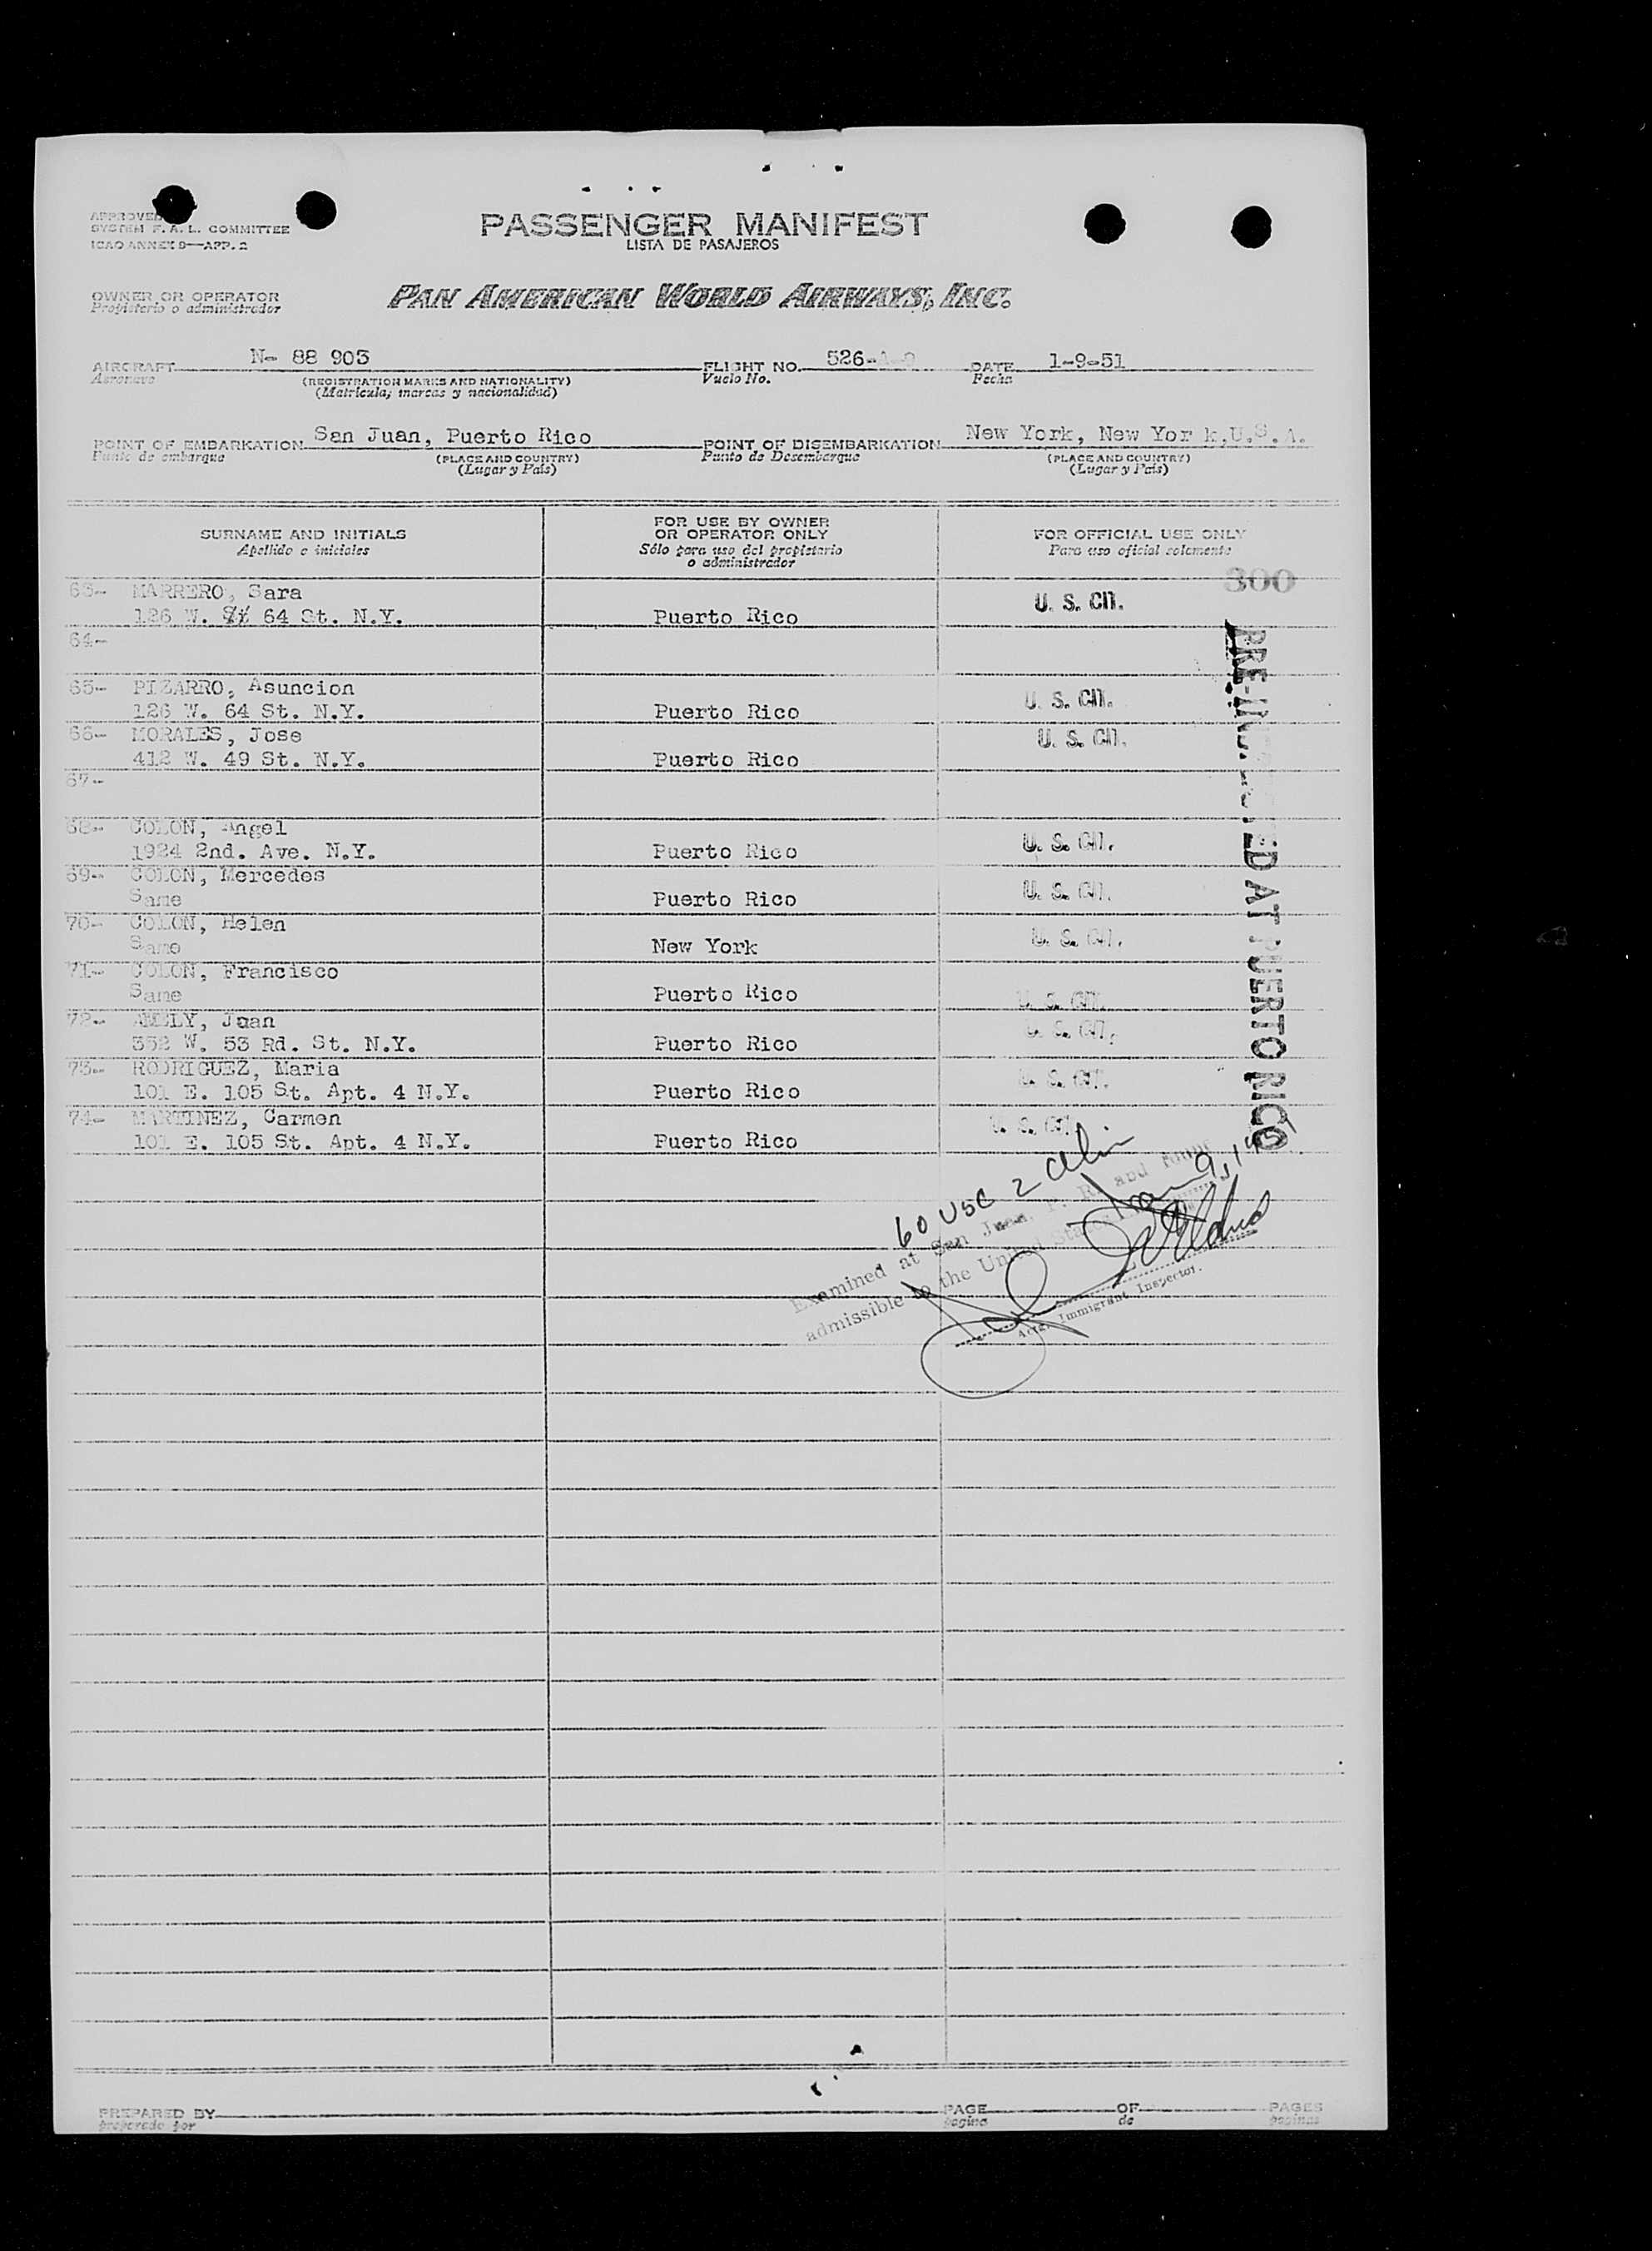 APPROVED
SYSTEM F. A. L. COMMITTEE
ICAO ANNEX 9—APP. 2
PASSENGER MANIFEST
LISTA DE PASAJEROS
OWNER OR OPERATOR
Propietario o administrador
PAN AMERICAN WORLD AIRWAYS, INC.
AIRCRAFT N- 88 903 FLIGHT NO. 526-A-9 DATE 1-9-51
Aeronave (REGISTRATION MARKS AND NATIONALITY) Vuelo No. Fecha
(Matrícula, marcas y nacionalidad)
POINT OF EMBARKATION San Juan, Puerto Rico POINT OF DISEMBARKATION New York, New Yor k,U.S.A.
Punto de embarque (PLACE AND COUNTRY) Punto de Desembarque (PLACE AND COUNTRY)
(Lugar y País) (Lugar y País)
SURNAME AND INITIALS
Apellido e iniciales
FOR USE BY OWNER
OR OPERATOR ONLY
Sólo para uso del propietario
o administrador
FOR OFFICIAL USE ONLY
Para uso oficial solamente
300
63- MARRERO, Sara
126 W. 64 St. N.Y. Puerto Rico U. S. CIT.
64-
65- PIZARRO, Asuncion
126 W. 64 St. N.Y. Puerto Rico U. S. CIT.
66- MORALES, Jose
412 W. 49 St. N.Y. Puerto Rico U. S. CIT.
67-
68- COLON, Angel
1924 2nd. Ave. N.Y. Puerto Rico U. S. CIT.
69- COLON, Mercedes
Same Puerto Rico U. S. CIT.
70- COLON, Helen
Same New York U. S. CIT.
71- COLON, Francisco
Same Puerto Rico U. S. CIT.
72- AMELY, Juan
352 W. 53 Rd. St. N.Y. Puerto Rico U. S. CIT.
73- RODRIGUEZ, Maria
101 E. 105 St. Apt. 4 N.Y. Puerto Rico U. S. CIT.
74- MARTINEZ, Carmen
101 E. 105 St. Apt. 4 N.Y. Puerto Rico U. S. CIT.
PRE-INSPECTED AT PUERTO RICO
60 USC 2 alin
Examined at San Juan, P. R. and found
admissible to the United States
Jan 9, 1951
Actg. Immigrant Inspector.
PREPARED BY PAGE OF PAGES
preparado por pagina de paginas